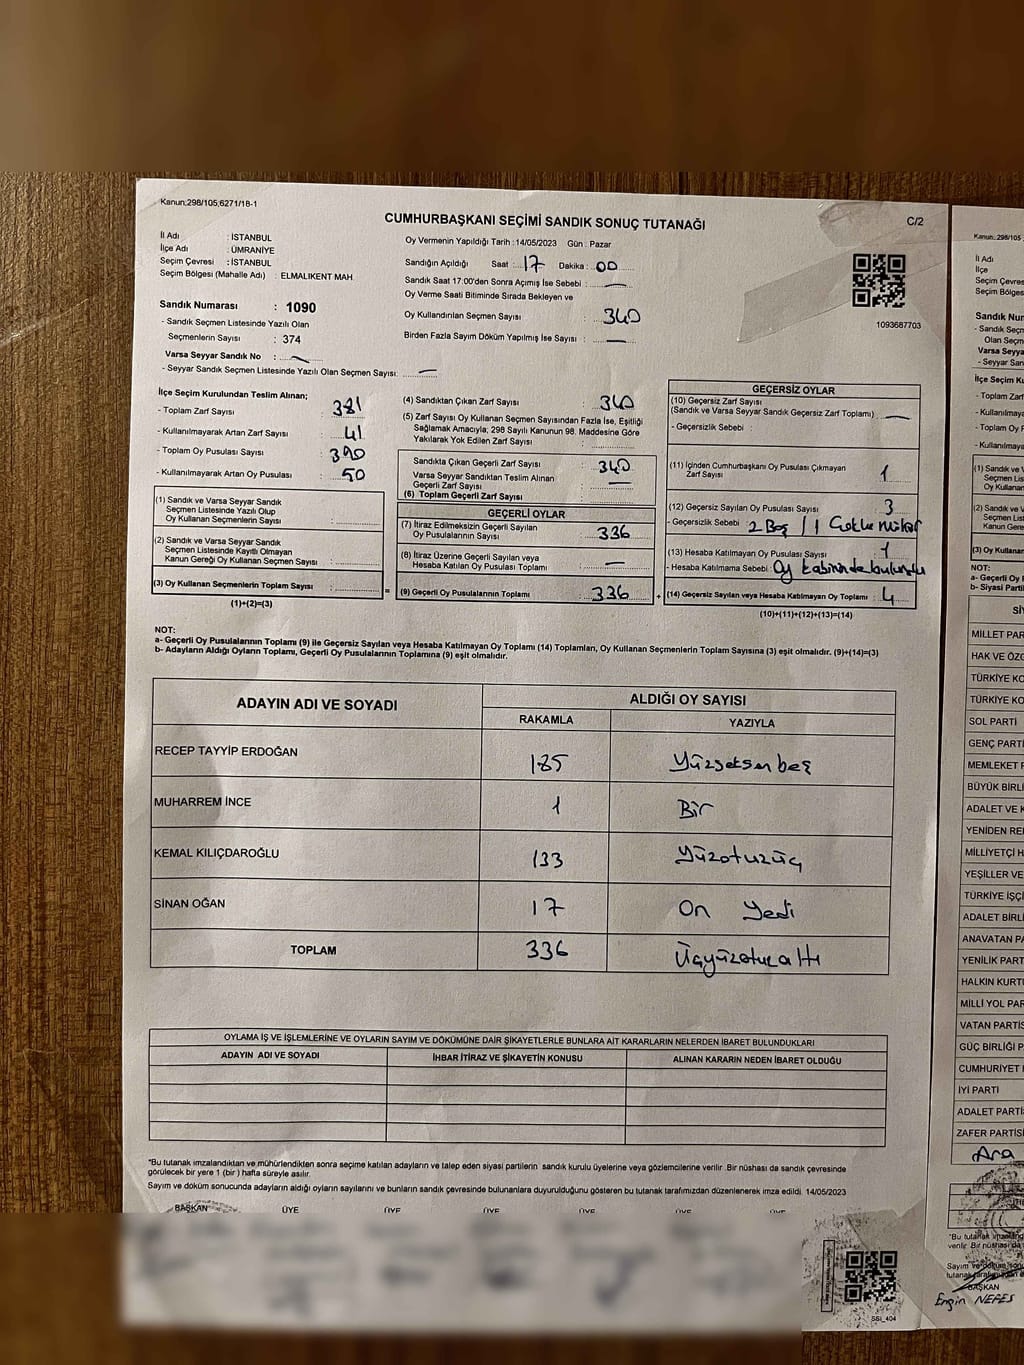 Kanun:298/105;6271/18-1
CUMHURBAŞKANI SEÇİMİ SANDIK SONUÇ TUTANAĞI
C/2
İl Adı : İSTANBUL
İlçe Adı : ÜMRANİYE
Seçim Çevresi : İSTANBUL
Seçim Bölgesi (Mahalle Adı) : ELMALIKENT MAH.
Sandık Numarası : 1090
- Sandık Seçmen Listesinde Yazılı Olan
Seçmenlerin Sayısı : 374
Varsa Seyyar Sandık No : —
- Seyyar Sandık Seçmen Listesinde Yazılı Olan Seçmen Sayısı: —
Oy Vermenin Yapıldığı Tarih : 14/05/2023 Gün : Pazar
Sandığın Açıldığı Saat : 17 Dakika : 00
Sandık Saat 17:00'den Sonra Açımış İse Sebebi : —
Oy Verme Saati Bitiminde Sırada Bekleyen ve
Oy Kullandırılan Seçmen Sayısı : 340
Birden Fazla Sayım Döküm Yapılmış İse Sayısı : —
1093687703
İlçe Seçim Kurulundan Teslim Alınan;
- Toplam Zarf Sayısı : 381
- Kullanılmayarak Artan Zarf Sayısı : 41
- Toplam Oy Pusulası Sayısı : 390
- Kullanılmayarak Artan Oy Pusulası : 50
(1) Sandık ve Varsa Seyyar Sandık
Seçmen Listesinde Yazılı Olup
Oy Kullanan Seçmenlerin Sayısı :
(2) Sandık ve Varsa Seyyar Sandık
Seçmen Listesinde Kayıtlı Olmayan
Kanun Gereği Oy Kullanan Seçmen Sayısı :
(3) Oy Kullanan Seçmenlerin Toplam Sayısı :
(1)+(2)=(3)
(4) Sandıktan Çıkan Zarf Sayısı : 340
(5) Zarf Sayısı Oy Kullanan Seçmen Sayısından Fazla İse, Eşitliği
Sağlamak Amacıyla; 298 Sayılı Kanunun 98. Maddesine Göre
Yakılarak Yok Edilen Zarf Sayısı :
Sandıkta Çıkan Geçerli Zarf Sayısı : 340
Varsa Seyyar Sandıktan Teslim Alınan
Geçerli Zarf Sayısı : —
(6) Toplam Geçerli Zarf Sayısı :
GEÇERLİ OYLAR
(7) İtiraz Edilmeksizin Geçerli Sayılan
Oy Pusulalarının Sayısı : 336
(8) İtiraz Üzerine Geçerli Sayılan veya
Hesaba Katılan Oy Pusulası Toplamı : —
(9) Geçerli Oy Pusulalarının Toplamı : 336
GEÇERSİZ OYLAR
(10) Geçersiz Zarf Sayısı
(Sandık ve Varsa Seyyar Sandık Geçersiz Zarf Toplamı) : —
- Geçersizlik Sebebi :
(11) İçinden Cumhurbaşkanı Oy Pusulası Çıkmayan
Zarf Sayısı : 1
(12) Geçersiz Sayılan Oy Pusulası Sayısı : 3
- Geçersizlik Sebebi : 2 Boş / 1
(13) Hesaba Katılmayan Oy Pusulası Sayısı : 1
- Hesaba Katılmama Sebebi : Oy kabininde bulundu
(14) Geçersiz Sayılan veya Hesaba Katılmayan Oy Toplamı : 4
(10)+(11)+(12)+(13)=(14)
NOT:
a- Geçerli Oy Pusulalarının Toplamı (9) ile Geçersiz Sayılan veya Hesaba Katılmayan Oy Toplamı (14) Toplamları, Oy Kullanan Seçmenlerin Toplam Sayısına (3) eşit olmalıdır. (9)+(14)=(3)
b- Adayların Aldığı Oyların Toplamı, Geçerli Oy Pusulalarının Toplamına (9) eşit olmalıdır.
ADAYIN ADI VE SOYADI ALDIĞI OY SAYISI
RAKAMLA YAZIYLA
RECEP TAYYİP ERDOĞAN 185 Yüzseksenbeş
MUHARREM İNCE 1 Bir
KEMAL KILIÇDAROĞLU 133 Yüzotuzüç
SİNAN OĞAN 17 On Yedi
TOPLAM 336 Üçyüzotuzaltı
OYLAMA İŞ VE İŞLEMLERİNE VE OYLARIN SAYIM VE DÖKÜMÜNE DAİR ŞİKAYETLERLE BUNLARA AİT KARARLARIN NELERDEN İBARET BULUNDUKLARI
ADAYIN ADI VE SOYADI İHBAR İTİRAZ VE ŞİKAYETİN KONUSU ALINAN KARARIN NEDEN İBARET OLDUĞU
*Bu tutanak imzalandıktan ve mühürlendikten sonra seçime katılan adayların ve talep eden siyasi partilerin sandık kurulu üyelerine veya gözlemcilerine verilir. Bir nüshası da sandık çevresinde
görülecek bir yere 1 (bir) hafta süreyle asılır.
Sayım ve döküm sonucunda adayların aldığı oyların sayılarını ve bunların sandık çevresinde bulunanlara duyurulduğunu gösteren bu tutanak tarafımızdan düzenlenerek imza edildi. 14/05/2023
BAŞKAN ÜYE ÜYE ÜYE ÜYE ÜYE ÜYE
SSI_404
Kanun: 298/105
İl Adı
İlçe
Seçim Çevres
Seçim Bölges
Sandık Num
- Sandık Seçm
Olan Seçm
Varsa Seyya
- Seyyar San
İlçe Seçim K
- Toplam Zar
- Kullanılmaya
- Toplam Oy P
- Kullanılmaya
(1) Sandık ve
Seçmen Lis
Oy Kullana
(2) Sandık ve
Seçmen Lis
Kanun Gere
(3) Oy Kullana
NOT:
a- Geçerli Oy
b- Siyasi Parti
Sİ
MİLLET PAR
HAK VE ÖZG
TÜRKİYE KO
TÜRKİYE KO
SOL PARTİ
GENÇ PARTİ
MEMLEKET P
BÜYÜK BİRLİ
ADALET VE K
YENİDEN RE
MİLLİYETÇİ H
YEŞİLLER VE
TÜRKİYE İŞÇİ
ADALET BİRL
ANAVATAN PA
YENİLİK PART
HALKIN KURTU
MİLLİ YOL PAR
VATAN PARTİS
GÜÇ BİRLİĞİ P
CUMHURİYET
İYİ PARTİ
ADALET PARTİS
ZAFER PARTİSİ
Ara
*Bu tutanak imzaland
verilir. Bir nüshası da
BAŞKAN
Engin NEFES